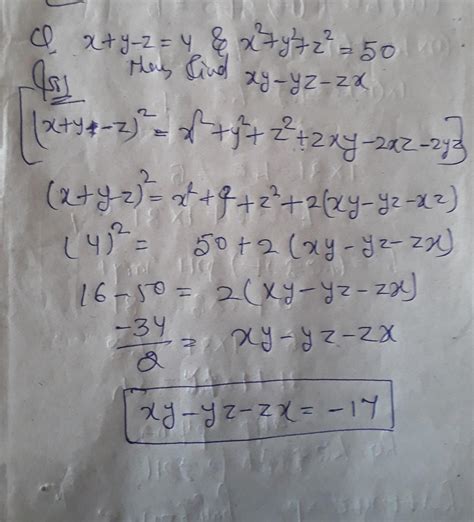 Q x+y-z=4 & x²+y²+z²=50
then find xy-yz-zx
[(x+y-z)² = x²+y²+z²+2xy-2xz-2yz]
(x+y-z)² = x²+y²+z²+2(xy-yz-xz)
(4)² = 50+2(xy-yz-zx)
16-50 = 2(xy-yz-zx)
-34/2 = xy-yz-zx
xy-yz-zx = -17